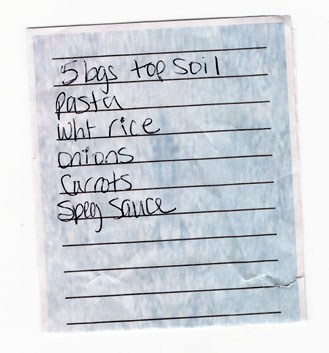 5 bgs top soil
pasta
wht rice
onions
Carrots
Speg Sauce